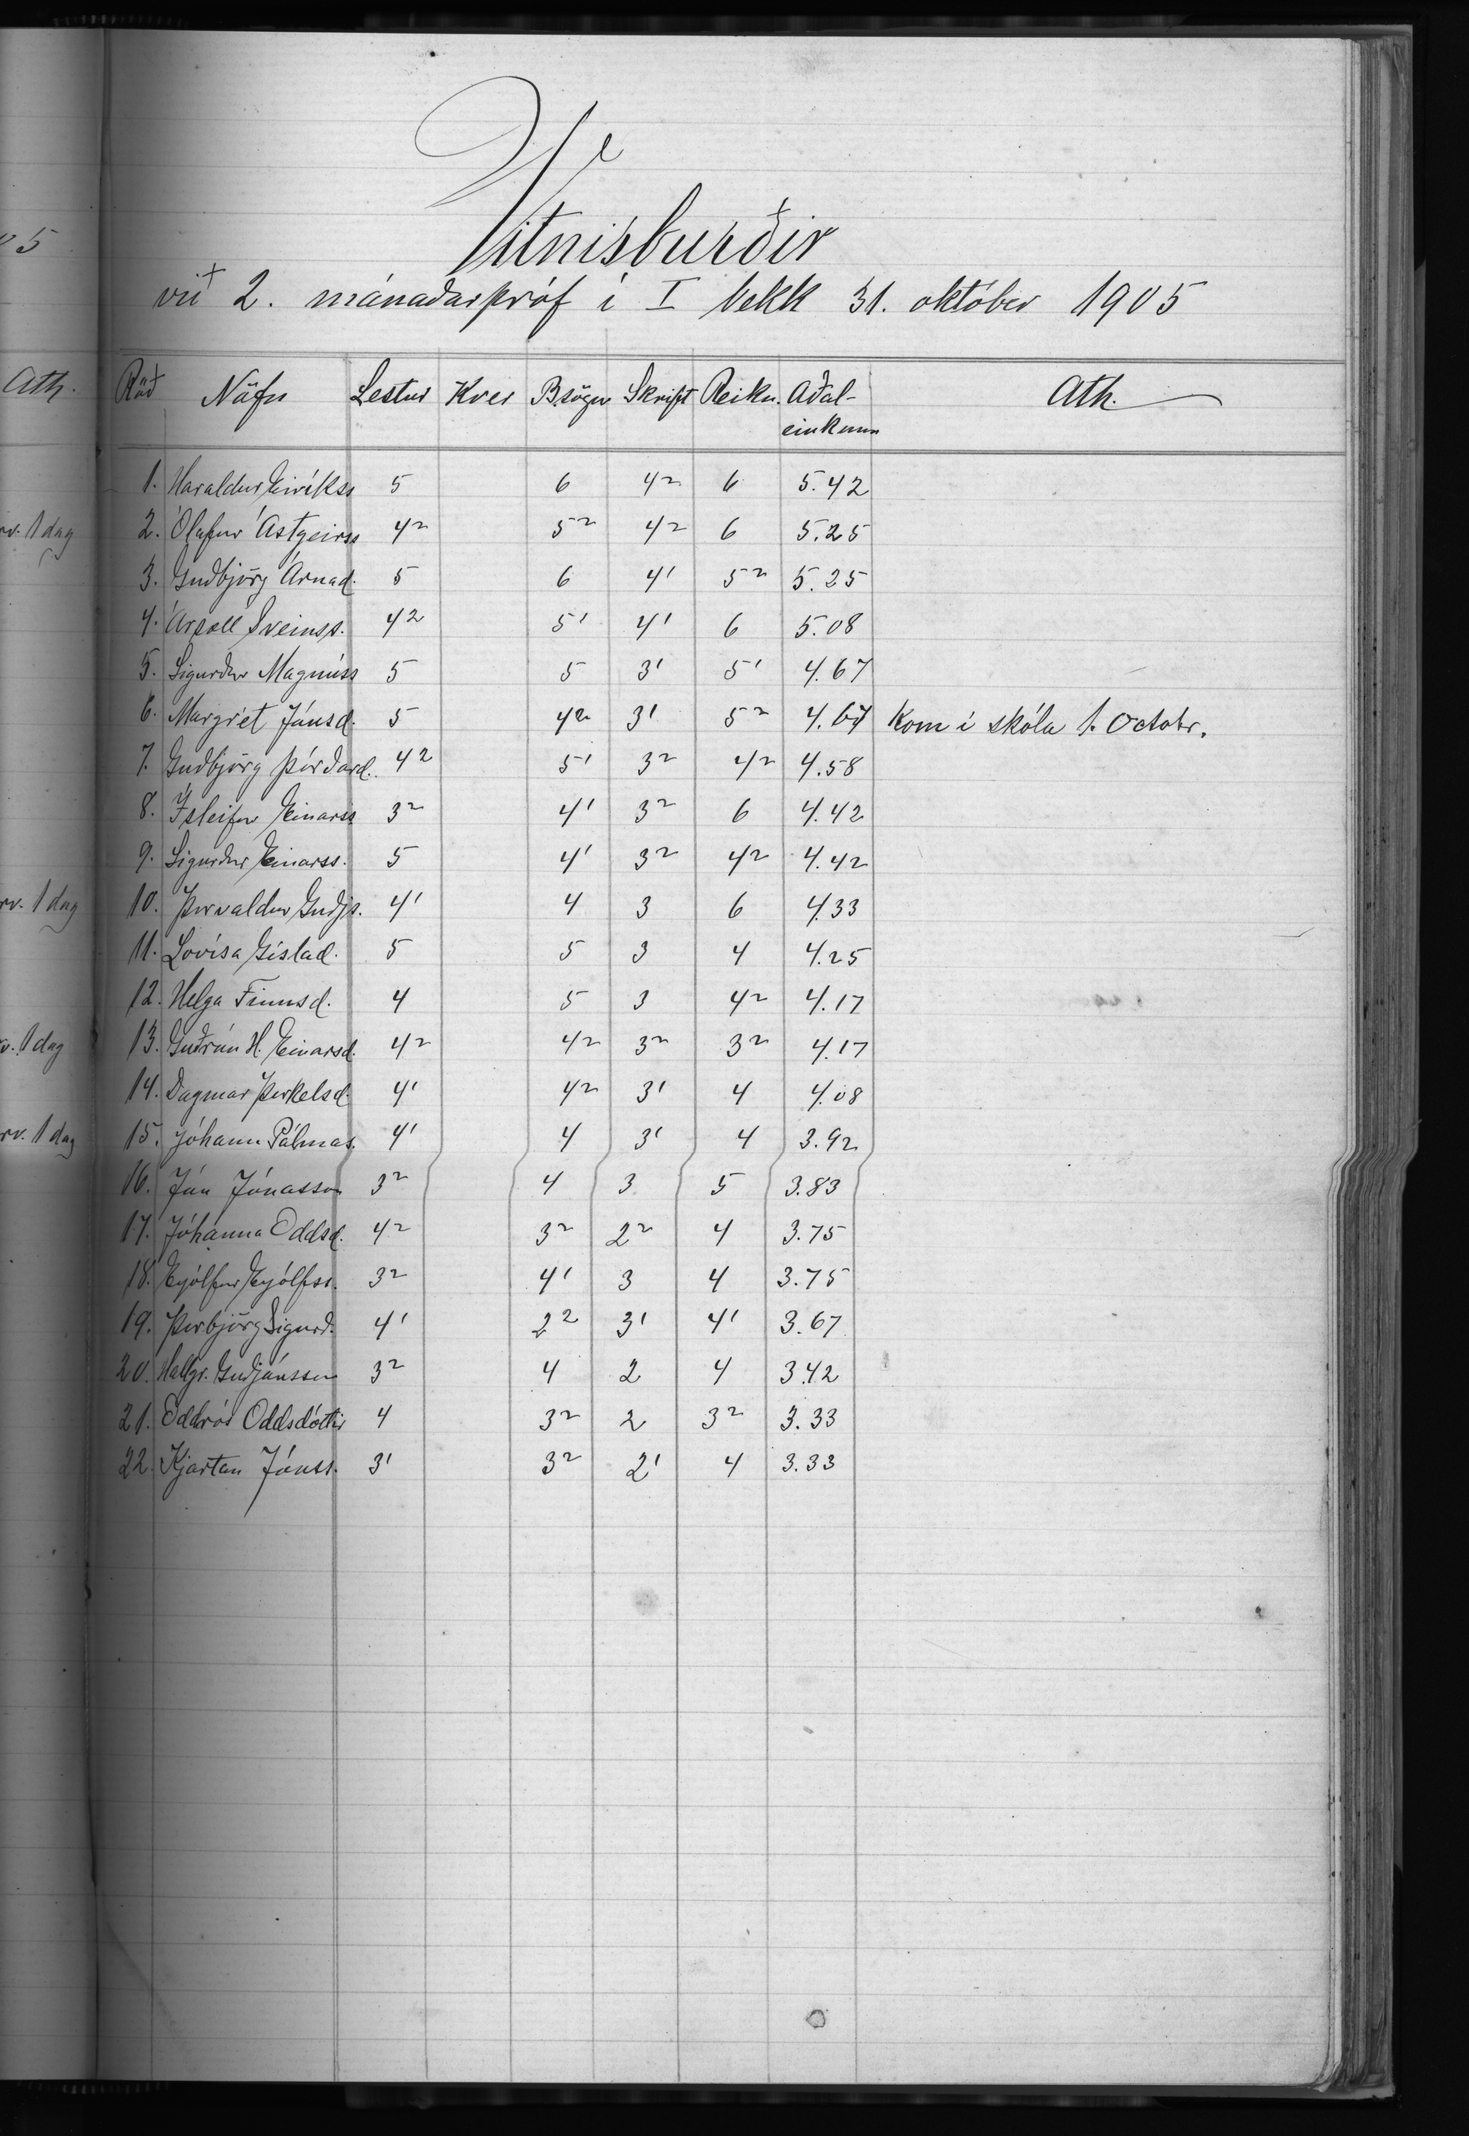 Vitnisburðir
við 2. mánaðarpróf í I bekk 31. október 1905
Röð Nöfn Lestur Kver B.sögur Skrift Reikn. Aðal-einkunn Ath.
1. Haraldur Eiríkss 5 6 4² 6 5.42
2. Ólafur Ástgeirss 4² 5² 4² 6 5.25
3. Guðbjörg Árnad. 5 6 4' 5² 5.25
4. Ársæll Sveinss. 4² 5' 4' 6 5.08
5. Sigurður Magnúss 5 5 3' 5' 4.67
6. Margrét Jónsd. 5 4² 3' 5² 4.67 Kom í skóla 1. Octobr.
7. Guðbjörg Þórðard. 4² 5' 3² 4² 4.58
8. Ísleifur Einarss 3² 4' 3² 6 4.42
9. Sigurður Einarss. 5 4' 3² 4² 4.42
10. Þorvaldur Guðjs. 4' 4 3 6 4.33
11. Lovísa Gíslad. 5 5 3 4 4.25
12. Helga Finnsd. 4 5 3 4² 4.17
13. Guðrún H. Einarsd. 4² 4² 3² 3² 4.17
14. Dagmar Þorkelsd. 4' 4² 3' 4 4.08
15. Jóhann Pálmas. 4' 4 3' 4 3.92
16. Jón Jónasson 3² 4 3 5 3.83
17. Jóhanna Oddsd. 4² 3² 2² 4 3.75
18. Eyjólfur Eyjólfss. 3² 4' 3 4 3.75
19. Þorbjörg Sigurð. 4' 2² 3' 4' 3.67
20. Hallgr. Guðjónsson 3² 4 2 4 3.42
21. Oddrós Oddsdóttir 4 3² 2 3² 3.33
22. Kjartan Jónss. 3' 3² 2' 4 3.33
5
Ath.
rv. 1 dag
rv. 1 dag
v. 1 dag
rv. 1 dag